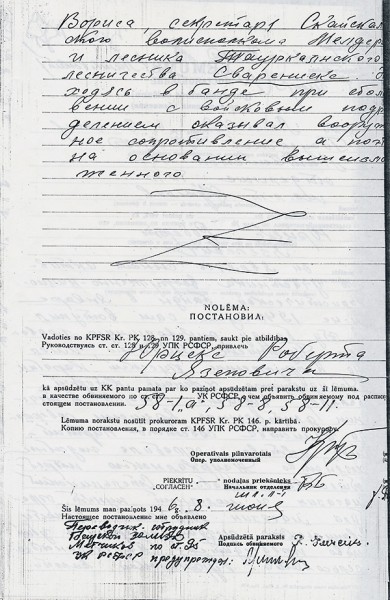 Бориса, секретаря
волисполкома Мелдер
и лесника Тауркалнского
лесничества Сваренiекс.
ходясь в банде при стол
вении с войсковым подр
делением оказывал вооруж
ное сопротивление а пот
на основании вышеизло
женного
NOLĒMA:
ПОСТАНОВИЛ:
Vadoties no KPFSR Kr. PK 128. un 129. pantiem, saukt pie atbildības
Руководствуясь ст. ст. 128 и 129 УПК РСФСР, привлечь
Роберта
Язеповича
kā apsūdzētu uz KK pantu pamata par ko paziņot apsūdzētam pret parakstu uz šī lēmuma.
в качестве обвиняемого по ст. УК РСФСР, о чем объявить обвиняемому под расписку
стоящем постановлении.
58-1"а", 58-8, 58-11.
Lēmuma norakstu nosūtīt prokuroram KPFSR Kr. PK 146. p. kārtībā.
Копию постановления, в порядке ст. 146 УПК РСФСР, направить прокурору
Operatīvais pilnvarotais
Опер. уполномоченный
PIEKRĪTU
„СОГЛАСЕН“
nodaļas priekšnieks
Начальник отделения
Šis lēmums man paziņots 194 6 g. 8. июня
Настоящее постановление мне объявлено
Переводчик. сотрудник
по ст. 95
УК РСФСР предупрежден:
Apsūdzētā paraksts
Подпись обвиняемого